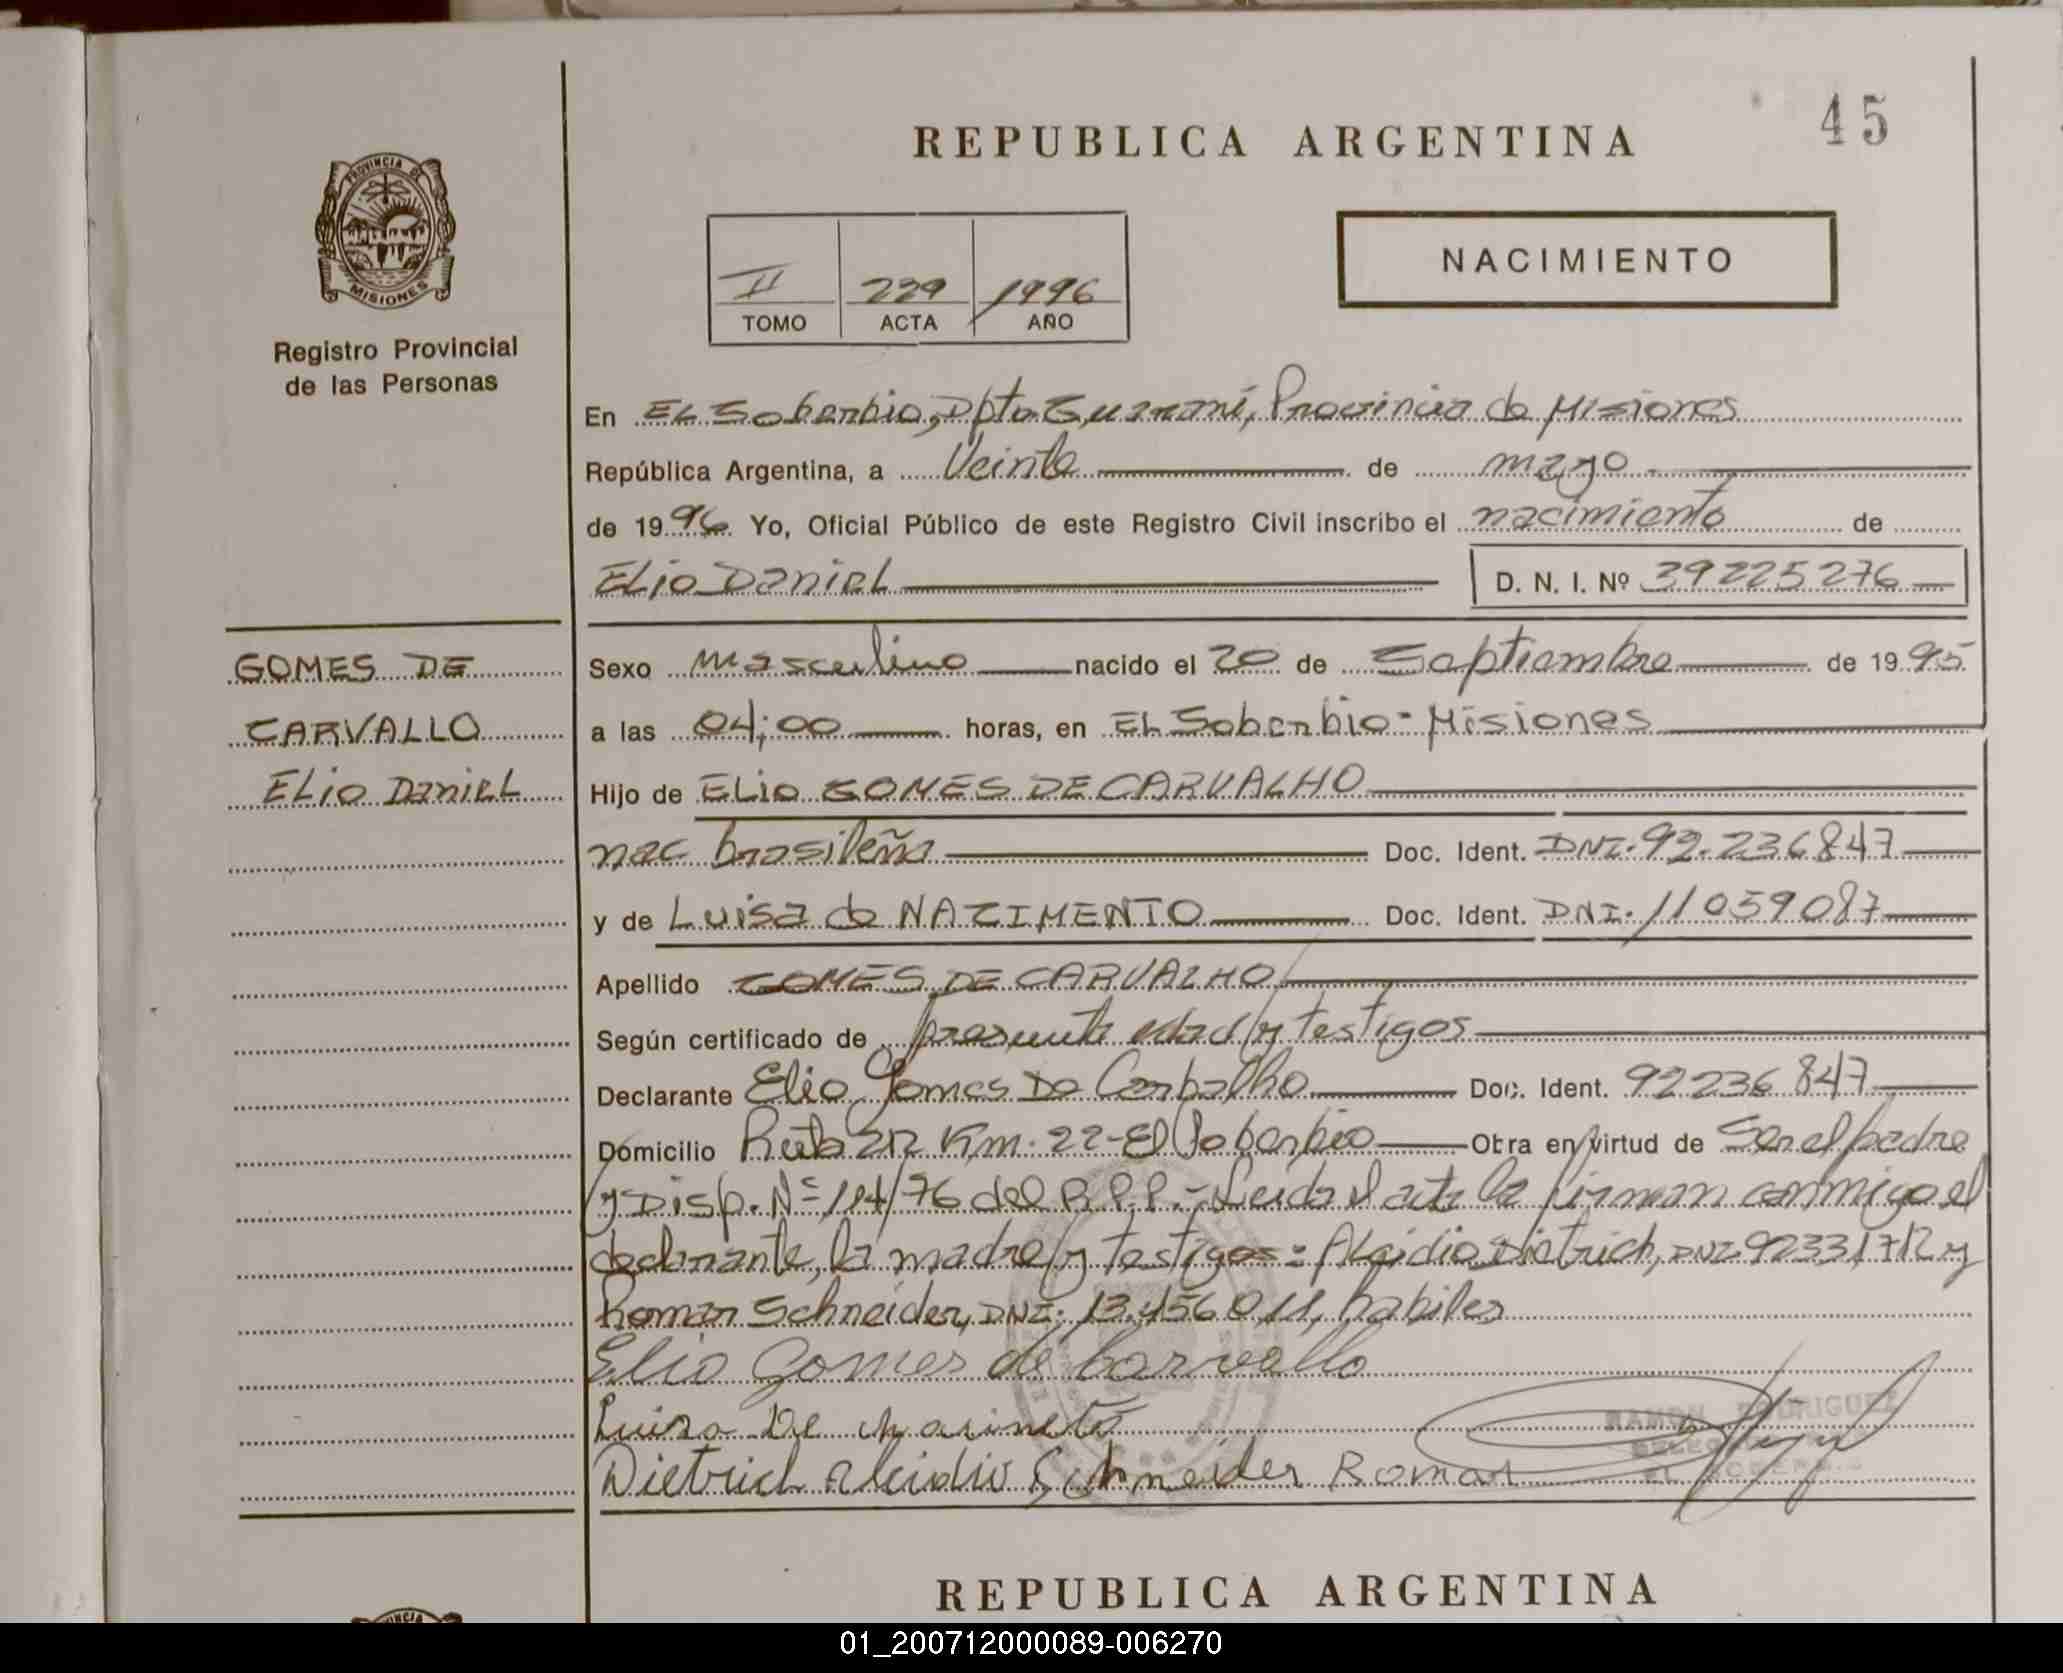 REPUBLICA ARGENTINA
45
PROVINCIA DE
MISIONES
Registro Provincial
de las Personas
NACIMIENTO
II 229 1996
TOMO ACTA AÑO
En EL Soberbio, Dpto Guaraní, Provincia de Misiones
República Argentina, a Veinte de mayo
de 1996 Yo, Oficial Público de este Registro Civil inscribo el nacimiento de
ELio DaniEL
D. N. I. Nº 39225276
GOMES DE
CARVALLO
ELio DaniEL
Sexo masculino nacido el 20 de Septiembre de 1995
a las 04;00 horas, en EL Soberbio - Misiones
Hijo de ELio GOMES DE CARVALHO
nac brasileña Doc. Ident. DNI. 92.236847
y de Luisa de NAZIMENTO Doc. Ident. DNI. 11059087
Apellido GOMES DE CARVALHO
Según certificado de presunta edad y testigos
Declarante Elio Gomes De Carbalho Doc. Ident. 92236847
Domicilio Ruta 212 Km. 22-El Soberbio Obra en virtud de Ser el padre
y Disp. Nº 114/76 del R.P.P.- Leida el acta la firman conmigo el
declarante, la madre y testigos: Alcidio Dietrich, DNI 92331712 y
Roman Schneider, DNI: 13.456011, habiles
Elio Gomes de Carvallo
Luisa De
Dietrich Alcidio Schneider Roman
RAMON RODRIGUEZ
REPUBLICA ARGENTINA
01_200712000089-006270